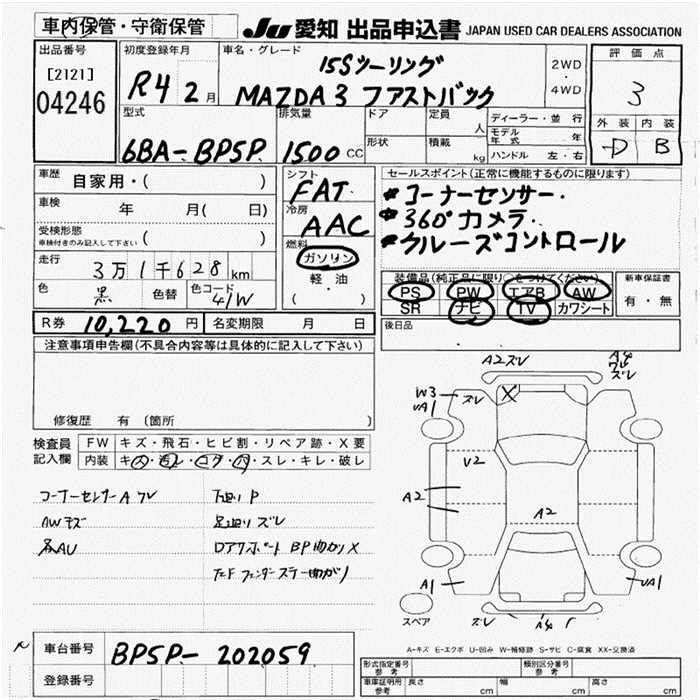 車内保管・守衛保管
JU 愛知 出品申込書 JAPAN USED CAR DEALERS ASSOCIATION
出品番号
[2121]
04246
初度登録年月
R4 2月
車名・グレード
15Sツーリング
MAZDA3 ファストバック
2WD
・
4WD
評価点
3
外装 内装
D B
型式
6BA-BP5P
排気量
1500 CC
ドア
形状
定員
人
積載
kg
ディーラー・並行
モデル年式 年
ハンドル 左・右
車歴
自家用・( )
車検
年 月( 日)
受検形態
車検付きのみ記入して下さい ( )
走行
3万1千628km
色
黒 色替
色コード
41W
シフト
FAT
冷房
AAC
燃料
ガソリン
軽・油
( ・ )
セールスポイント(正常に機能するものに限ります)
*コーナーセンサー・
*360°カメラ・
*クルーズコントロール
装備品(純正品に限り○をつけてください)
PS PW エアB AW
SR ナビ TV カワシート
新車保証書
有・無
後日品
R券 10,220円 名変期限 月 日
注意事項申告欄(不具合内容等は具体的に記入して下さい)
修復歴 有 (箇所 )
検査員記入欄
FW キズ・飛石・ヒビ割・リペア跡・X要
内装 キズ・汚レ・コゲ・穴・スレ・キレ・破レ
コーナーセンサーA ワレ
AWキズ
各AU
下廻りP
足廻りズレ
ロアサポートBP曲がりX
左Fフェンダーステー曲がり
A2ズレ
W3
UA1
ズレ
X
U2
A2
A2
A1
UA1
ズレ
スペア
A-キズ E-エクボ U-凹み W-補修跡 S-サビ C-腐食 XX-交換済
車台番号
BP5P-202059
登録番号
形式指定番号
参考
類別区分番号
参考
車庫証明用
参考
長さ cm
幅 cm
高さ cm